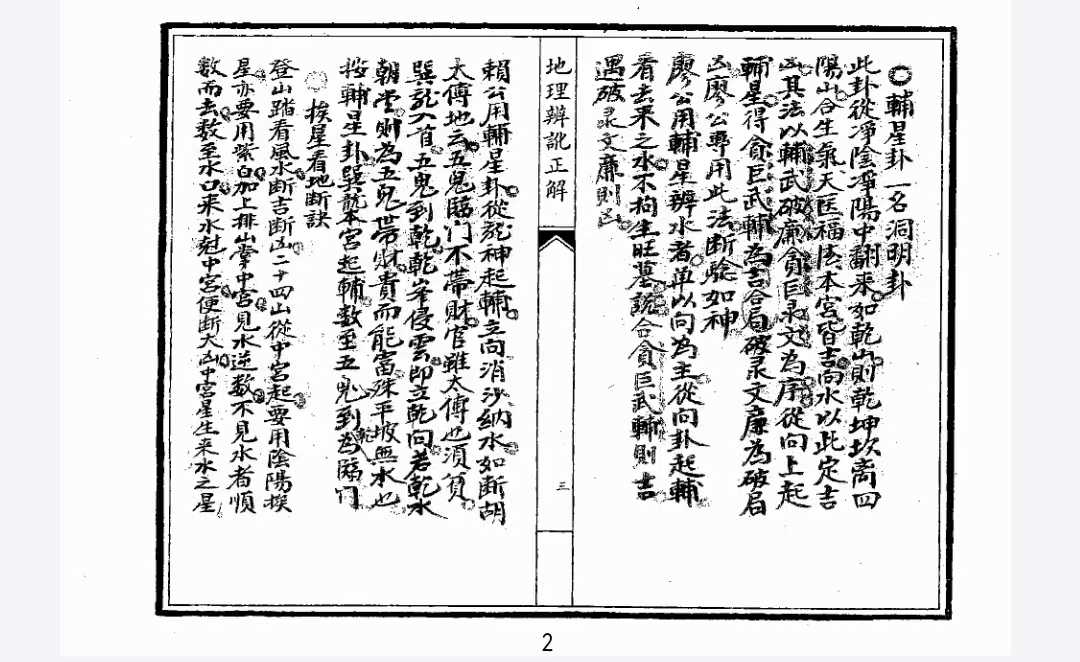 輔星卦一名洞明卦
此卦從凈陰凈陽中翻來如乾山則乾坤坎离四
陽山合生氣天医福德本宮皆吉向水以此定吉
凶其法以輔武破廉貪巨录文為序從向上起
輔星得貪巨武輔為吉合局破录文廉為破局
凶廖公專用此法断驗如神
廖公用輔星辨水者单以向為主從向卦起輔
看去來之水不拘生旺墓說合貪巨武輔則吉
遇破录文廉則凶
地理辨訛正解
三
賴公用輔星卦從龍神起輔立向消沙納水如断胡
太傅地云五鬼臨门不帶財官雖太傅也須貧
巽龍入首五鬼到乾乾峯侵雲即立乾向若乾水
朝堂則為五鬼帶財貴而能富殊平坡無水也
按輔星卦巽龍本宮起輔数至五鬼到乾為臨门
挨星看地断訣
登山踏看風水断吉断凶二十四山從中宮起要用陰陽挨
星亦要用紫白加上排山掌中宮見水逆数不見水者順
数而去数至水口來水尅中宮便断大凶中宮星生來水之星
2